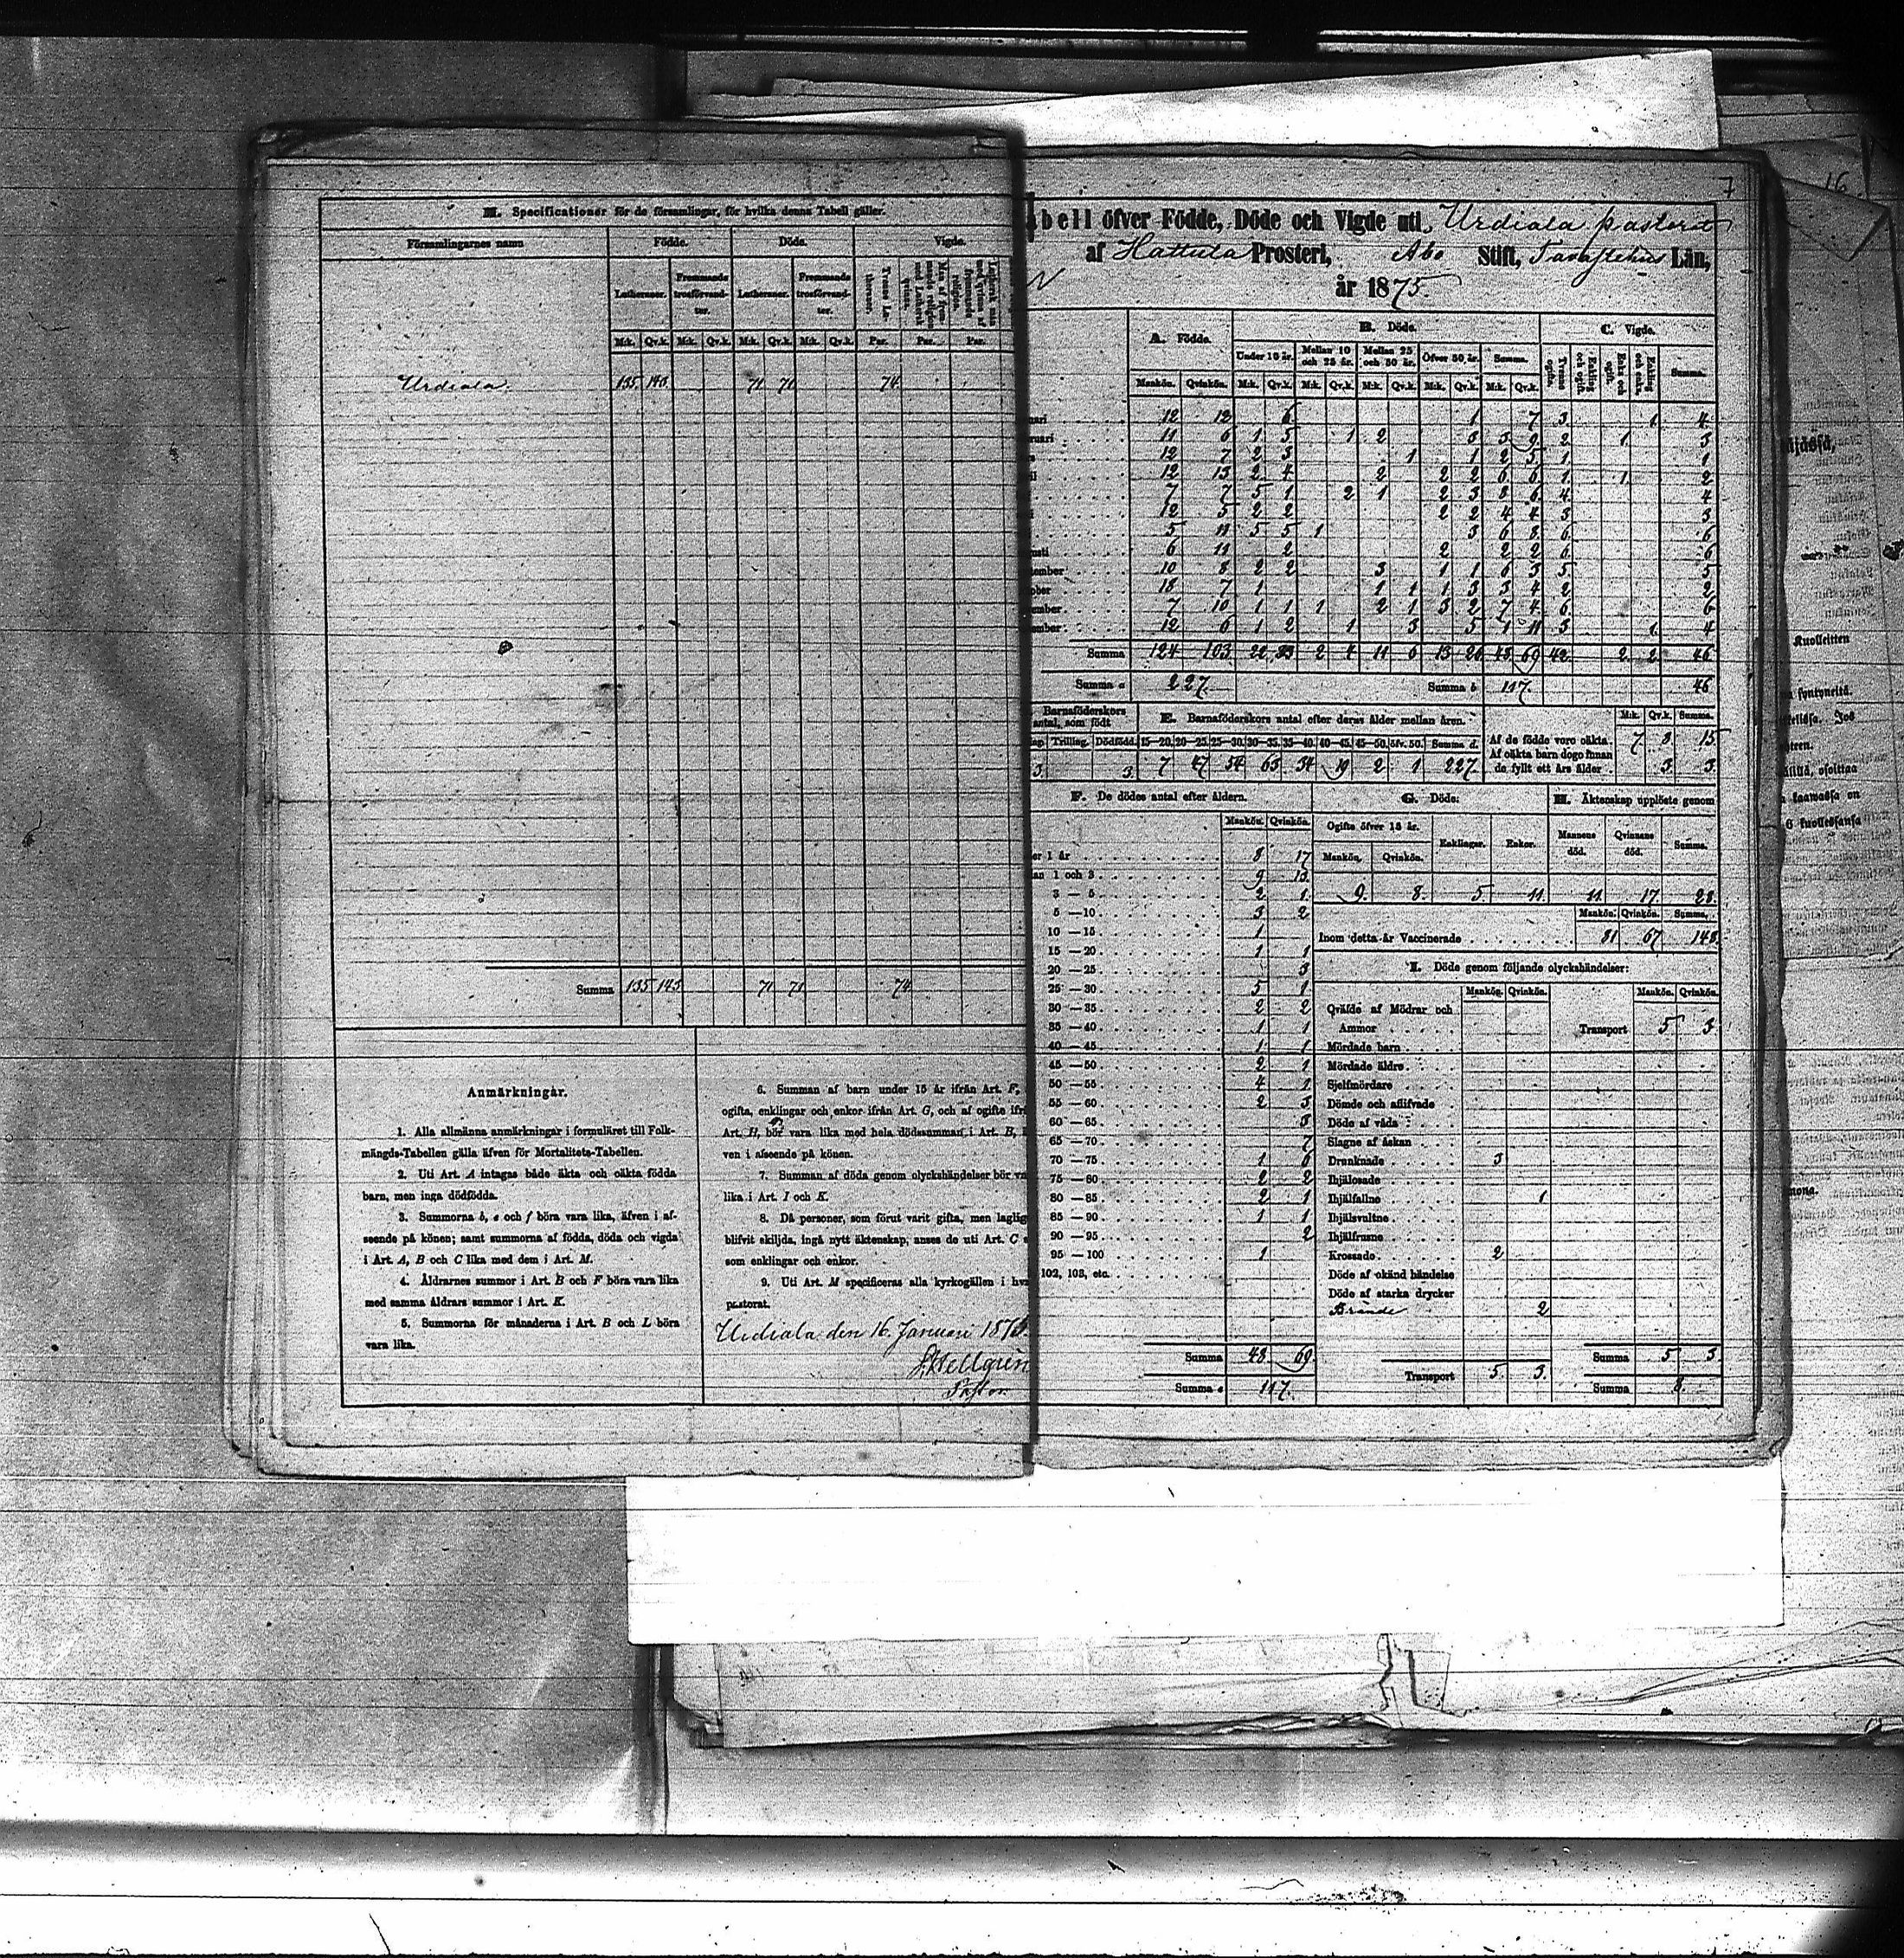 M. Specificationer för de församlingar, för hvilka denna Tabell gäller.
Församlingarnes namn Födde. Döde. Vigde.
Lutheraner. Frommande trosförvandter. Lutheraner. Frommande trosförvandter.
M:k. Qv.k. M:k. Qv.k. M:k. Qv.k. M:k. Qv.k. Par. Par. Par.
Urdiala. 135 145 71 71 74
Summa 135 145 71 71 74
Anmärkningar.
1. Alla allmänna anmärkningar i formuläret till Folk-
mängds-Tabellen gälla äfven för Mortalitets-Tabellen.
2. Uti Art. A intagas både äkta och oäkta födda
barn, men inga dödfödda.
3. Summorna b, e och f böra vara lika, äfven i af-
seende på könen; samt summorna af födda, döda och vigda
i Art. A, B och C lika med dem i Art. M.
4. Åldrarnes summor i Art. B och F böra vara lika
med samma åldrars summor i Art. K.
5. Summorna för månaderna i Art. B och L böra
vara lika.
6. Summan af barn under 15 år ifrån Art. F,
ogifta, enklingar och enkor ifrån Art. G, och af ogifte ifr
Art. H, bör vara lika med hela dödssumman i Art. B,
ven i afseende på könen.
7. Summan af döda genom olyckshändelser bör va
lika i Art. I och K.
8. Då personer, som förut varit gifta, men laglig
blifvit skiljda, ingå nytt äktenskap, anses de uti Art. C
som enklingar och enkor.
9. Uti Art. M specificeras alla kyrkogällen i hva
pastorat.
Urdiala den 16 Januari 1876.
Pastor
7
bell öfver Födde, Döde och Vigde uti Urdiala pastorat
af Hattula Prosteri, Abo Stift, Tavastehus Län,
år 1875.
A. Födde. B. Döde. C. Vigde.
Under 10 år. Mellan 10 och 25 år. Mellan 25 och 50 år. Öfver 50 år. Summa.
Tvenne ogifte. Enkling och ogift. Enka och ogift. Enkling och enka. Summa.
Mankön. Qvinkön. M:k. Qv.k. M:k. Qv.k. M:k. Qv.k. M:k. Qv.k. M:k. Qv.k.
uari 12 12 6 1 7 3 1 4
ruari 11 6 1 5 1 2 3 3 9 2 1 3
s 12 7 2 3 1 1 2 5 1 1
il 12 13 2 4 2 2 2 6 6 1 1 2
7 7 5 1 2 1 2 3 8 6 4 4
i 12 5 2 2 2 2 4 4 3 3
5 11 5 5 1 3 6 8 6 6
usti 6 11 2 2 2 2 6 6
ember 10 8 2 2 3 1 1 6 3 5 5
ober 18 7 1 1 1 1 3 3 4 2 2
ember 7 10 1 1 1 2 1 3 2 7 4 6 6
ember 12 6 1 2 1 3 5 1 11 3 1 4
Summa 124 103 22 33 2 4 11 6 13 26 48 69 42 2 2 46
Summa a 227. Summa b 117. 46
Barnaföderskors antal, som födt
Trilling. Dödfödd.
3 3
E. Barnaföderskors antal efter deras ålder mellan åren.
15—20. 20—25. 25—30. 30—35. 35—40. 40—45. 45—50. öfv. 50. Summa d.
7 47 54 63 34 19 2 1 227.
M:k. Qv.k. Summa.
Af de födde voro oäkta 7 8 15
Af oäkta barn dogo innan
de fyllt ett års ålder 3 3
F. De dödes antal efter åldern.
Mankön. Qvinkön.
er 1 år 8 17
an 1 och 3 9 13
3 — 5 2 1
5 —10 3 2
10 —15 1
15 —20 1 1
20 —25 3
25 —30 5 1
30 —35 2 2
35 —40 1 1
40 —45 1 1
45 —50 2 1
50 —55 4 1
55 —60 2 3
60 —65 3
65 —70 7
70 —75 1 6
75 —80 2 2
80 —85 2 1
85 —90 1 1
90 —95 2
95 —100 1
102, 103, etc.
Summa 48 69
Summa e 117.
G. Döde:
Ogifte öfver 15 år. Enklingar. Enkor.
Mankön. Qvinkön.
9 8 5 11
H. Äktenskap upplöste genom
Mannens död. Qvinnans död. Summa.
11 17 28
Mankön. Qvinkön. Summa.
Inom detta år Vaccinerade 81 67 148
I. Döde genom följande olyckshändelser:
Mankön. Qvinkön. Mankön. Qvinkön.
Qväfde af Mödrar och
Ammor Transport 5 3
Mördade barn
Mördade äldre
Sjelfmördare
Dömde och aflifvade
Döde af våda
Slagne af åskan
Drunknade 3
Ihjälosade
Ihjälfallne 1
Ihjälsvultne
Ihjälfrusne
Krossade 2
Döde af okänd händelse
Döde af starka drycker
Brände 2
Transport 5 3
Summa 5 3
Summa 8
16
Kuolleitten